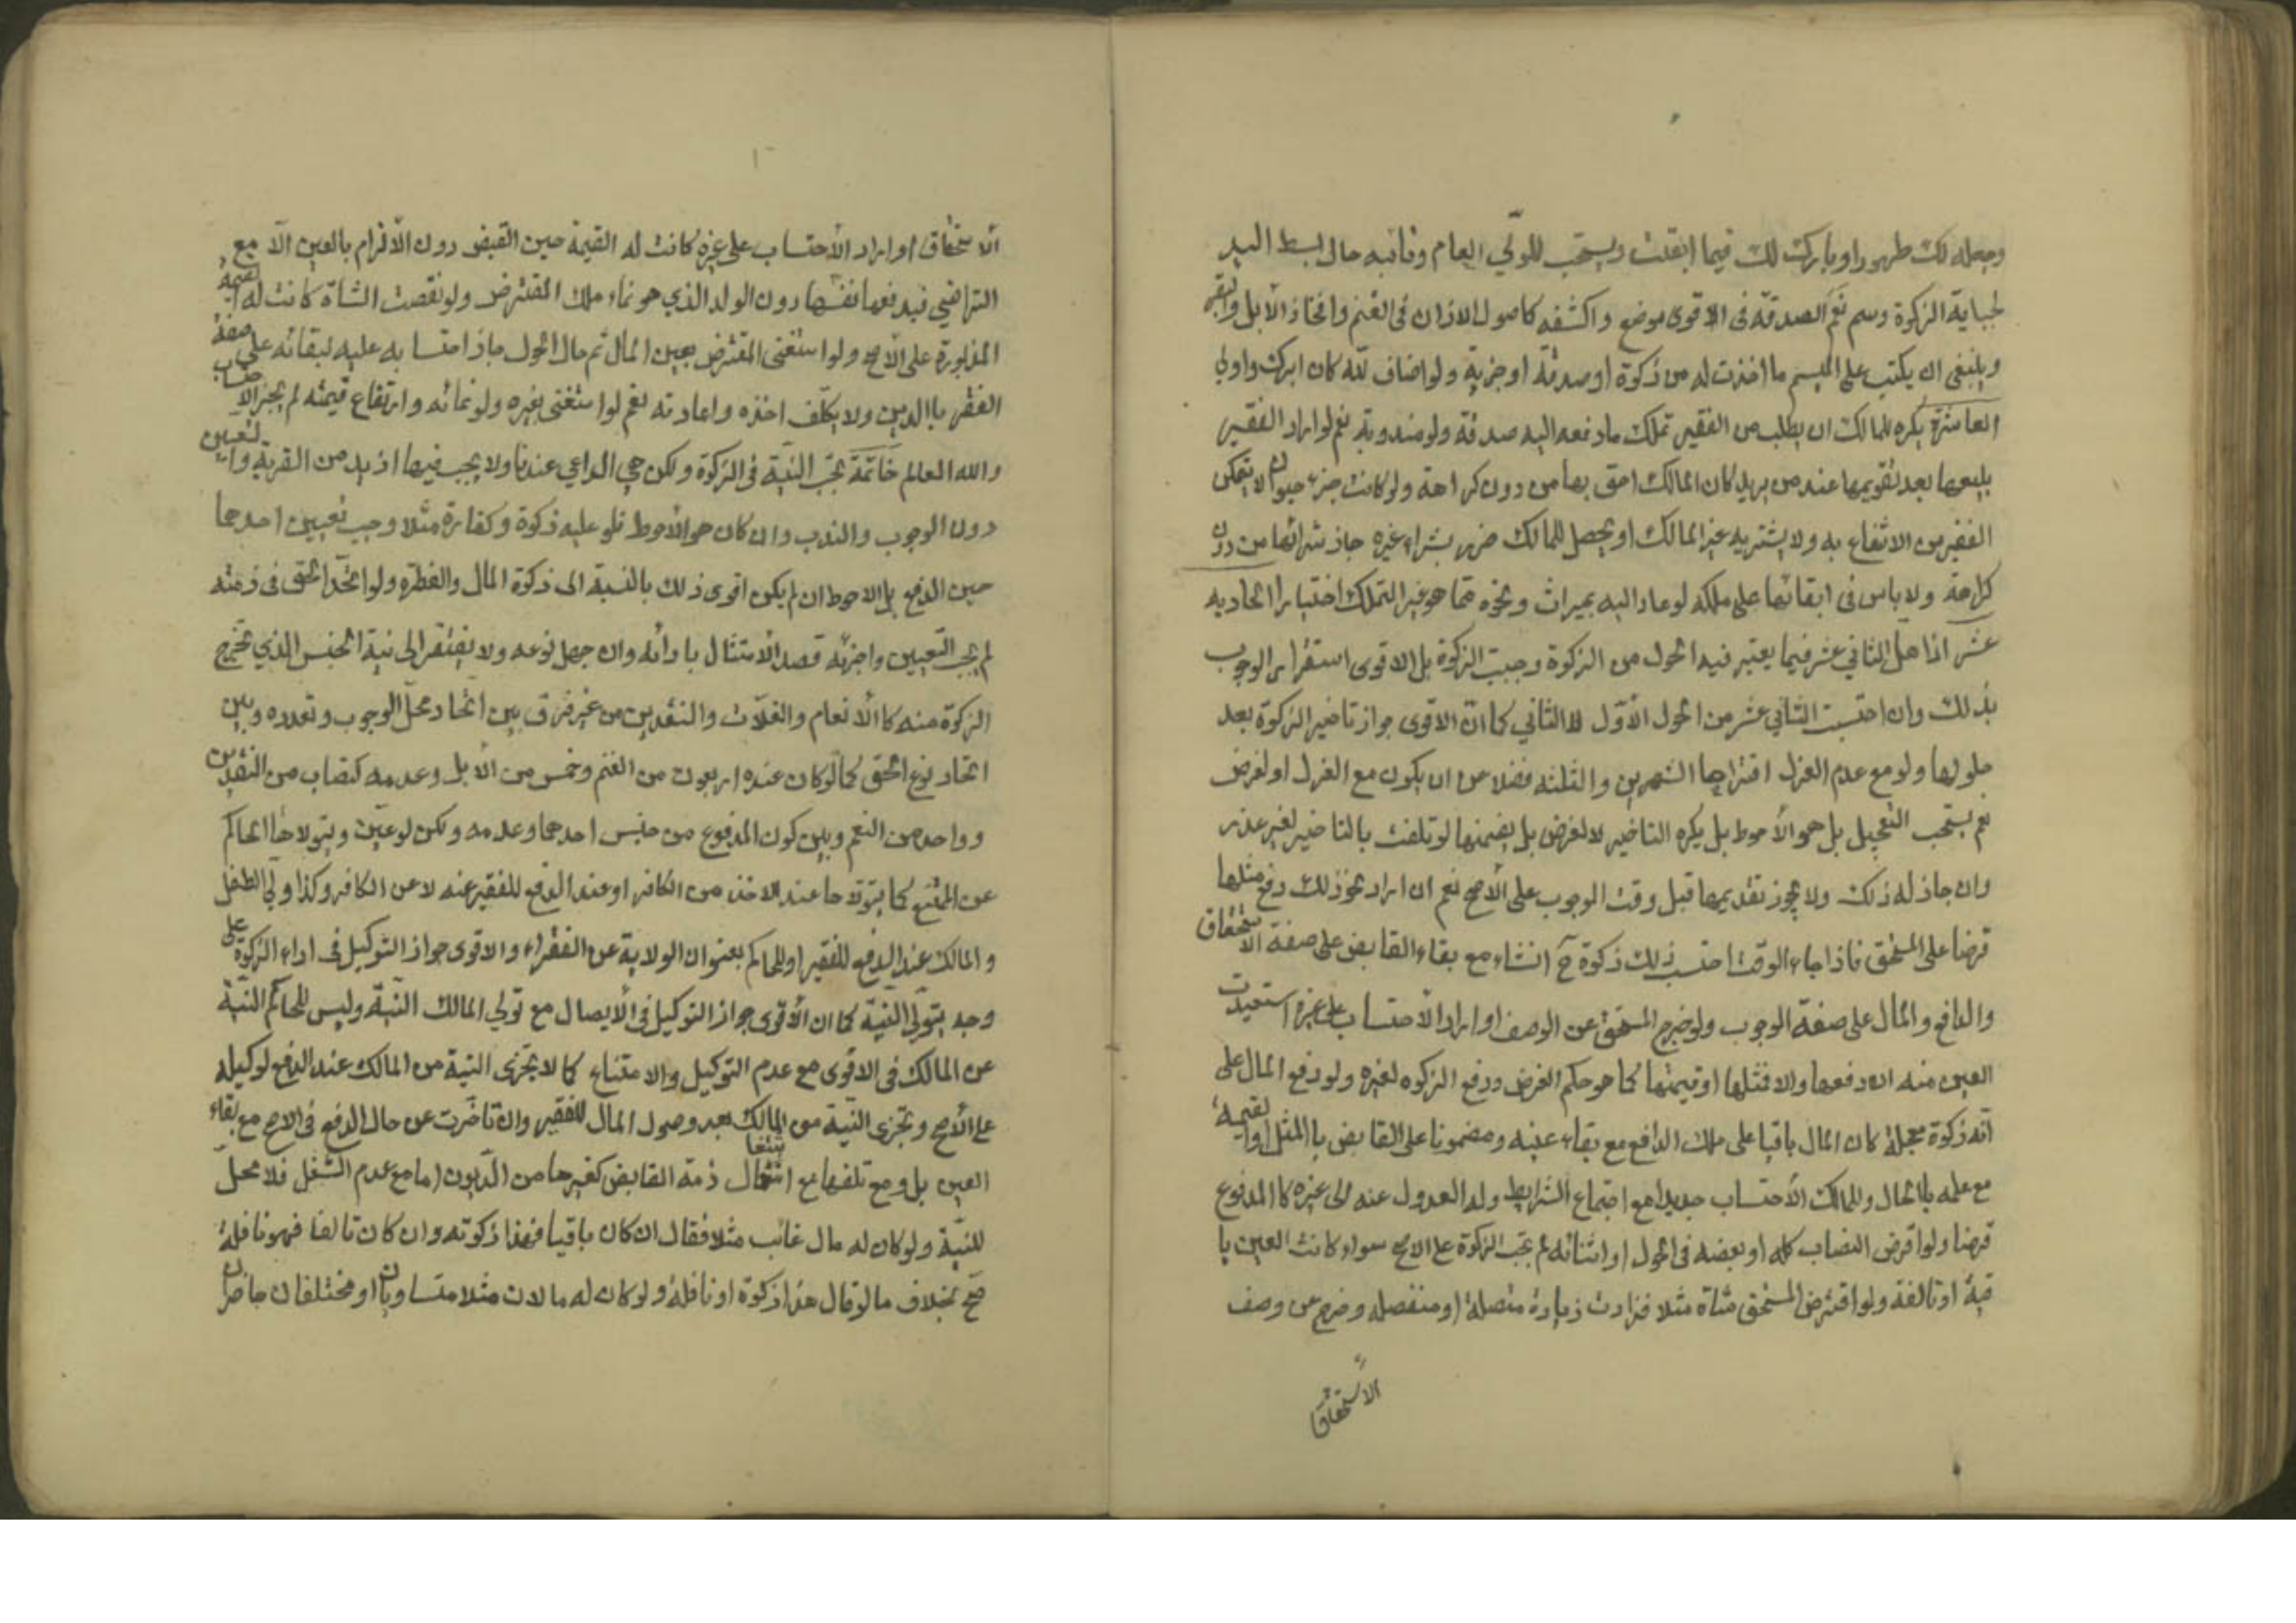 وجعله لك طهورا وبارك لك فيما ابقيت ويستحب للولي العام ونائبه حال بسط اليد
لجباية الزكوة وسم نعم الصدقة فى الاقوى موضع واكشفه كاصول الاذان فى الغنم وافخاذ الابل والبقر
وينبغى ان يكتب على الميسم ما اخذت له من زكوة او صدقة او جزية ولو اضاف لله كان ابرك واولى
العاشرة يكره للمالك ان يطلب من الفقير تملك ما دفعه اليه صدقة ولو مندوبة نعم لو اراد الفقير
بيعها بعد تقويمها عند من يريد كان المالك احق بها من دون كراهة ولو كانت جزء حيوان لا يتمكن
الفقير من الانتفاع به ولا يشتريه غير المالك او يحصل للمالك ضرر بشراء غيره جاز شرائها من دون
كراهة ولا باس فى ابقائها على ملكه لو عاد اليه بميراث ونحوه مما هو غير التملك اختيارا الحاديه
عشر اذا هل الثاني عشر فيما يعتبر فيه الحول من الزكوة وجبت الزكوة بل الاقوى استقرار الوجوب
بذلك وان احتسبت الثاني عشر من الحول الأول لا الثاني كما ان الاقوى جواز تاخير الزكوة بعد
حلولها ولو مع عدم العزل اقتراحا الشهرين والثلثه فضلا عن ان يكون مع العزل او لغرض
نعم يستحب التعجيل بل هو الأحوط بل يكره التاخير لا لغرض بل يضمنها لو تلفت بالتاخير لغير عذر
وان جاز له ذلك ولا يجوز تقديمها قبل وقت الوجوب على الأصح نعم ان اراد نحو ذلك دفع مثلها
قرضا على المستحق فاذا جاء الوقت احتسب ذلك زكوة ح انشاء مع بقاء القابض على صفة الاستحقاق
والدافع والمال على صفة الوجوب ولو خرج المستحق عن الوصف او اراد الأحتساب على غيره استعيدت
العين منه ان دفعها والا فمثلها او قيمتها كما هو حكم القرض ودفع الزكوه لغيره ولو دفع المال على
انه زكوة معجلة كان المال باقيا على ملك الدافع مع بقاء عينه ومضمونا على القابض بالمثل او القيمة
مع علمه بالحال وللمالك الأحتساب جديدا مع اجتماع الشرايط وله العدول عنه الى غيره كالمدفوع
قرضا ولو اقرض النصاب كله او بعضه فى الحول او اثنائه لم تجب الزكوة على الاصح سواء كانت العين با
قية او تالفة ولو اقترض المستحق شاة مثلا فزادت زيادة متصلة او منفصله وخرج عن وصف
الاستحقاق
الاستحقاق او اراد الأحتساب على غيره كانت له القيمة حين القبض دون الألزام بالعين الا مع
التراضي فيدفعها نفسها دون الولد الذي هو نماء ملك المقترض ولو نقصت الشاة كانت له القيمة
المذبورة على الأصح ولو استغنى المقترض بعين المال ثم حال الحول جاز احتسابه عليه لبقائه على صفة
الفقر بالدين ولا يكلف اخذه واعادته نعم لو استغنى بغيره ولو نمائه وارتفاع قيمته لم يجز الاحتساب
والله العالم خاتمة تجب النية فى الزكوة ولكن هي الداعي عندنا ولا يجب فيها ازيد من القربة والتعيين
دون الوجوب والندب وان كان هو الأحوط فلو عليه زكوة وكفارة مثلا وجب تعيين احدهما
حين الدفع بل الاحوط ان لم يكن اقوى ذلك بالنسبة الى زكوة المال والفطره ولو اتحد الحق فى ذمته
لم يجب التعيين واجزئه قصد الأمتثال بادائه وان جهل نوعه ولا يفتقر الى نية الجنس الذي تخرج
الزكوة منه كالأنعام والغلات والنقدين من غير فرق بين اتحاد محل الوجوب وتعدده وبين
اتحاد نوع الحق كما لو كان عنده اربعون من الغنم وخمس من الأبل وعدمه كنصاب من النقدين
وواحد من النعم وبين كون المدفوع من جنس احدهما وعدمه ولكن لو عين ويتولاها الحاكم
عن الممتنع كما يتولاها عند الاخذ من الكافر او عند الدفع للفقير عنه لا عن الكافر وكذا ولي الطفل
والمالك عند الدفع للفقير او للحاكم بعنوان الولاية عن الفقراء والاقوى جواز التوكيل فى اداء الزكوة على
وجه يتولى النية كما ان الأقوى جواز التوكيل فى الأيصال مع تولي المالك النية وليس للحاكم النية
عن المالك فى الاقوى مع عدم التوكيل والامتناع كما لا تجزى النية من المالك عند الدفع لوكيله
على الأصح وتجزى النية من المالك بعد وصول المال للفقير وان تاخرت عن حال الدفع فى الاصح مع بقاء
العين بل ومع تلفها مع اشتغال ذمة القابض كغيرها من الديون اما مع عدم الشغل فلا محل
للنية ولو كان له مال غائب مثلا فقال ان كان باقيا فهذا زكوته وان كان تالفا فهو نافلة
صح بخلاف ما لو قال هذا زكوة او نافلة ولو كان له مالان مثلا متساويان او مختلفان حاضران